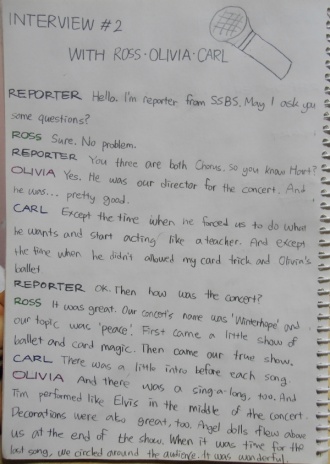 INTERVIEW #2
WITH ROSS·OLIVIA·CARL
REPORTER Hello. I'm reporter from SSBS. May I ask you
some questions?
ROSS Sure. No problem.
REPORTER You three are both Chorus, so you know Hort?
OLIVIA Yes. He was our director for the concert. And
he was... pretty good.
CARL Except the time when he forced us to do what
he wants and start acting like a teacher. And except
the time when he didn't allowed my card trick and Olivia's
ballet.
REPORTER OK. Then how was the concert?
ROSS It was great. Our concert's name was 'Winterhope' and
our topic was 'peace'. First came a little show of
ballet and card magic. Then came our true show.
CARL There was a little intro before each song.
OLIVIA And there was a sing-a-long, too. And
Tim performed like Elvis in the middle of the concert.
Decorations were also great, too. Angel dolls flew above
us at the end of the show. When it was time for the
last song, we circled around the audience. It was wonderful.